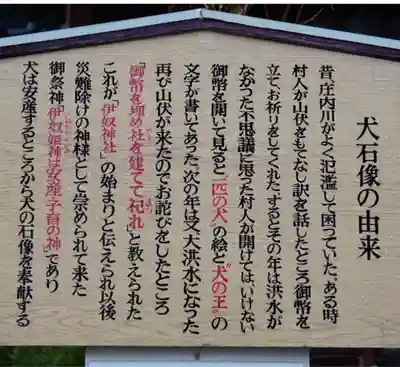 犬石像の由来
昔、庄内川がよく氾濫して困っていた、ある時
村人が山伏をもてなし訳を話したところ御幣を
立てお祈りをしてくれた、するとその年は洪水が
なかった不思議に思った村人が開けてはいけない
御幣を開いて見ると「一匹の犬」の絵と「犬の王」の
文字が書いてあった、次の年は又、大洪水になった
再び山伏が来たのでお詫びをしたところ
「御幣を埋め社を建てて祀れ」と教えられた
これが「伊奴神社」の始まりと伝えられ以後
災難除けの神様として崇められて来た
御祭神「伊奴姫神は安産・子育の神」であり
犬は安産するところから犬の石像を奉献する